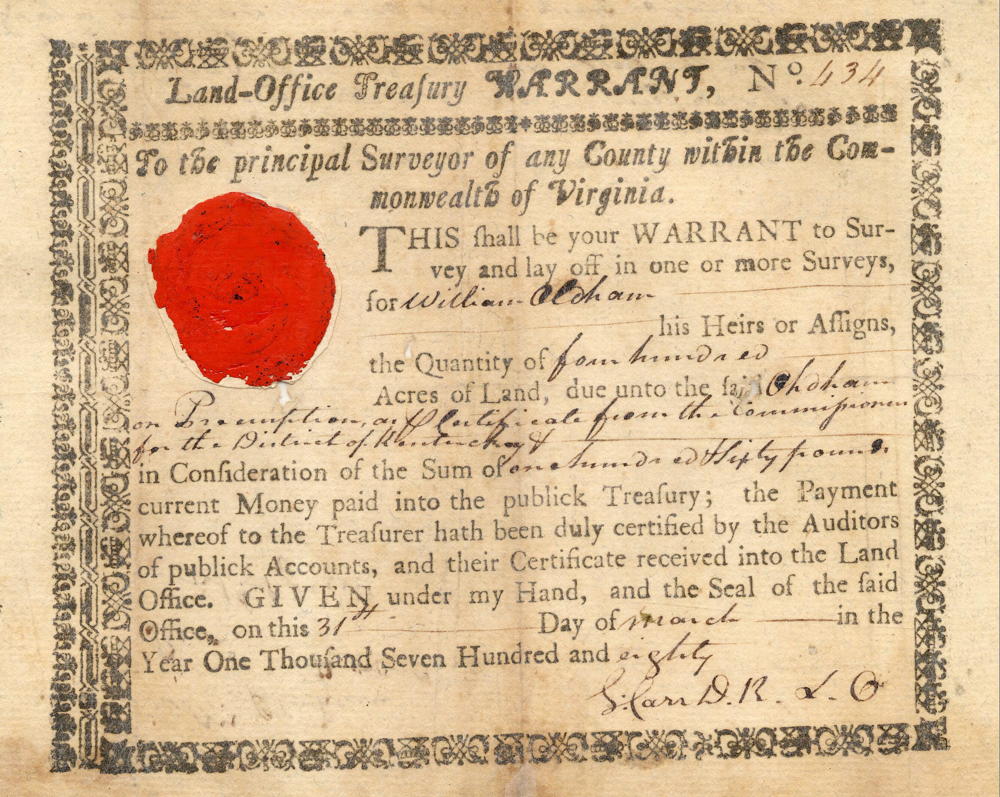 Land-Office Treaſury WARRANT, No. 434
To the principal Surveyor of any County within the Com-
monwealth of Virginia.
THIS ſhall be your WARRANT to Sur-
vey and lay off in one or more Surveys,
for William Oldham
his Heirs or Aſſigns,
the Quantity of four hundred
Acres of Land, due unto the ſaid Oldham
on Preemption, as Certificate from the Commissioners
for the District of Kentuckey &
in Conſideration of the Sum of one hundred & Sixty pounds
current Money paid into the publick Treaſury; the Payment
whereof to the Treaſurer hath been duly certified by the Auditors
of publick Accounts, and their Certificate received into the Land
Office. GIVEN under my Hand, and the Seal of the ſaid
Office, on this 31st Day of march in the
Year One Thouſand Seven Hundred and eighty
Carr D. R. L. O